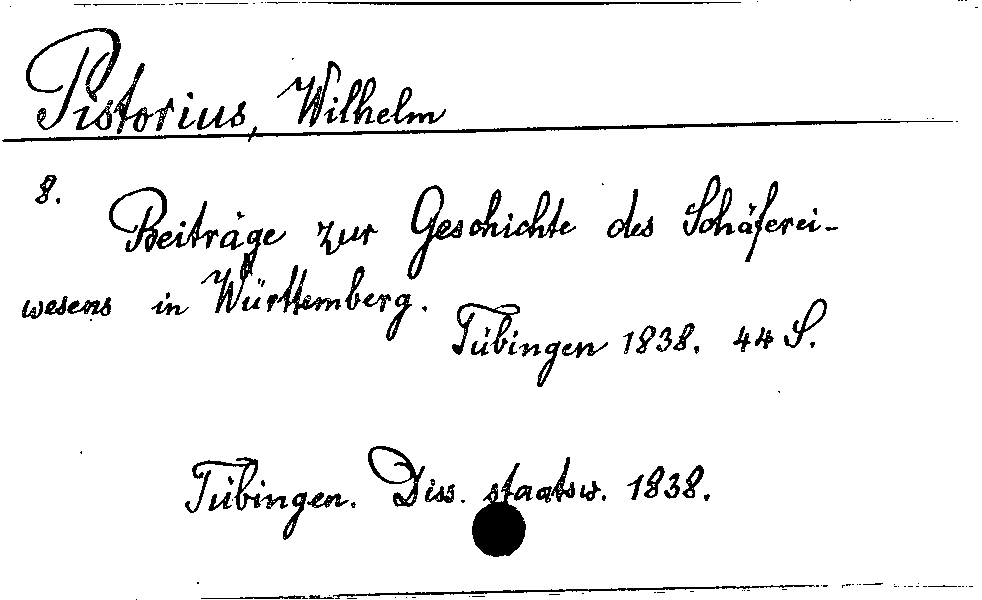 Pistorius, Wilhelm
8.
Beiträge zur Geschichte des Schäferei-
wesens in Württemberg.
Tübingen 1838. 44 S.
Tübingen. Diss. staatsw. 1838.